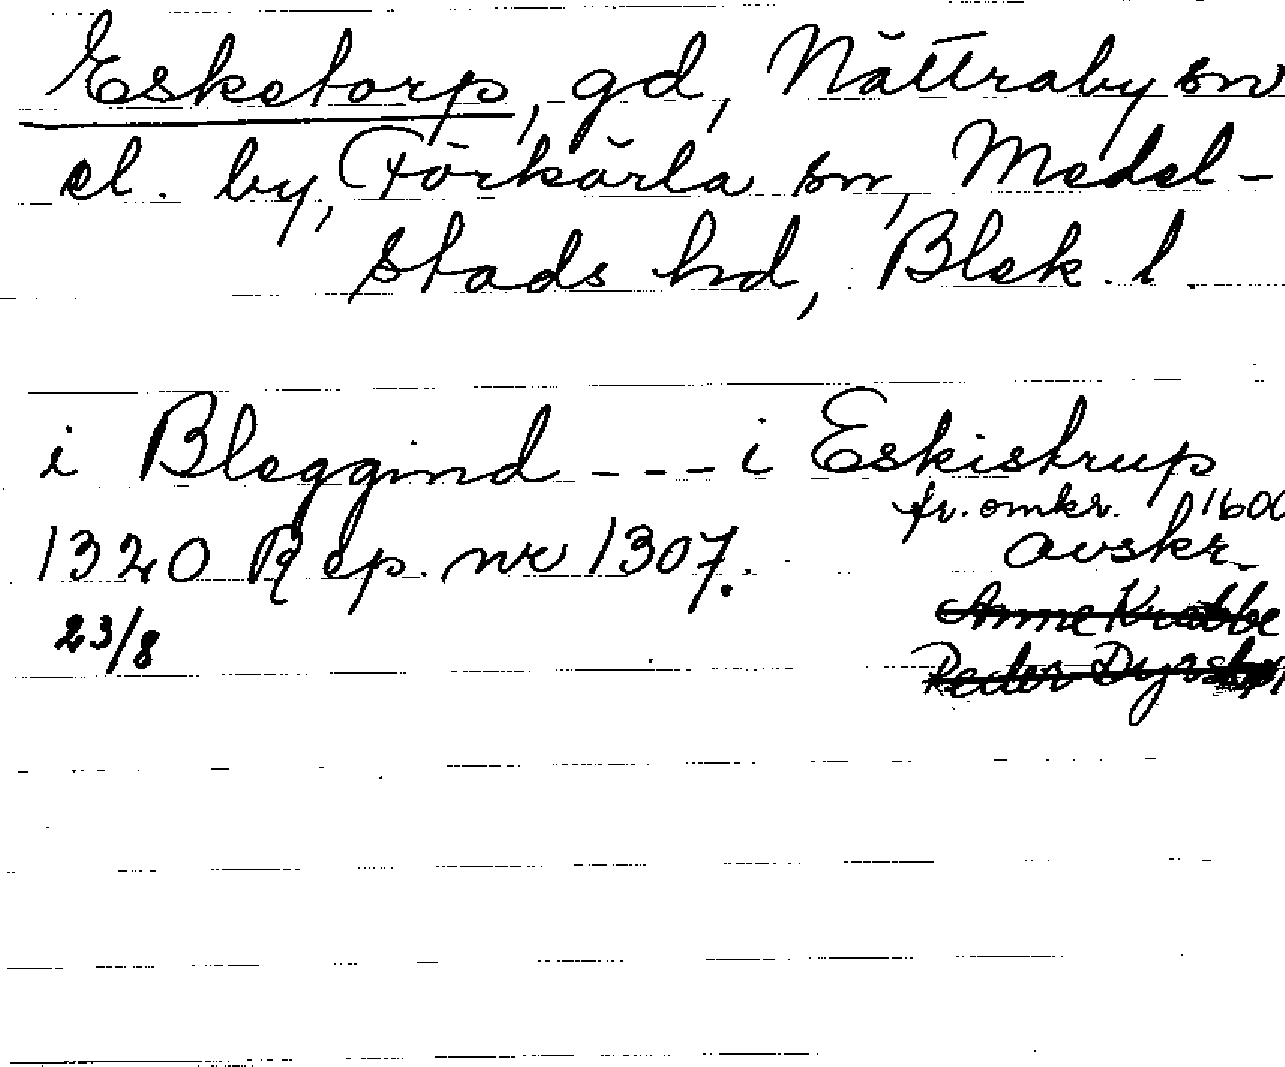 Esketorp, gd, Nättraby sn
el. by, Förkärla sn, Medel-
stads hd, Blek. l.
i Bleggind - - - i Eskistrup
1320 Rep. nr 1307.
fr. omkr. 1600
avskr.
23/8
Anne Krabbe
Peder Dyrs